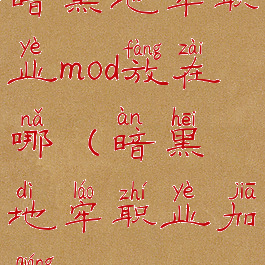 暗黑地牢职
yè fàng zài
业mod放在
nǎ àn hēi
哪（暗黑
dì láo zhí yè jiā
地牢职业加
qiáng